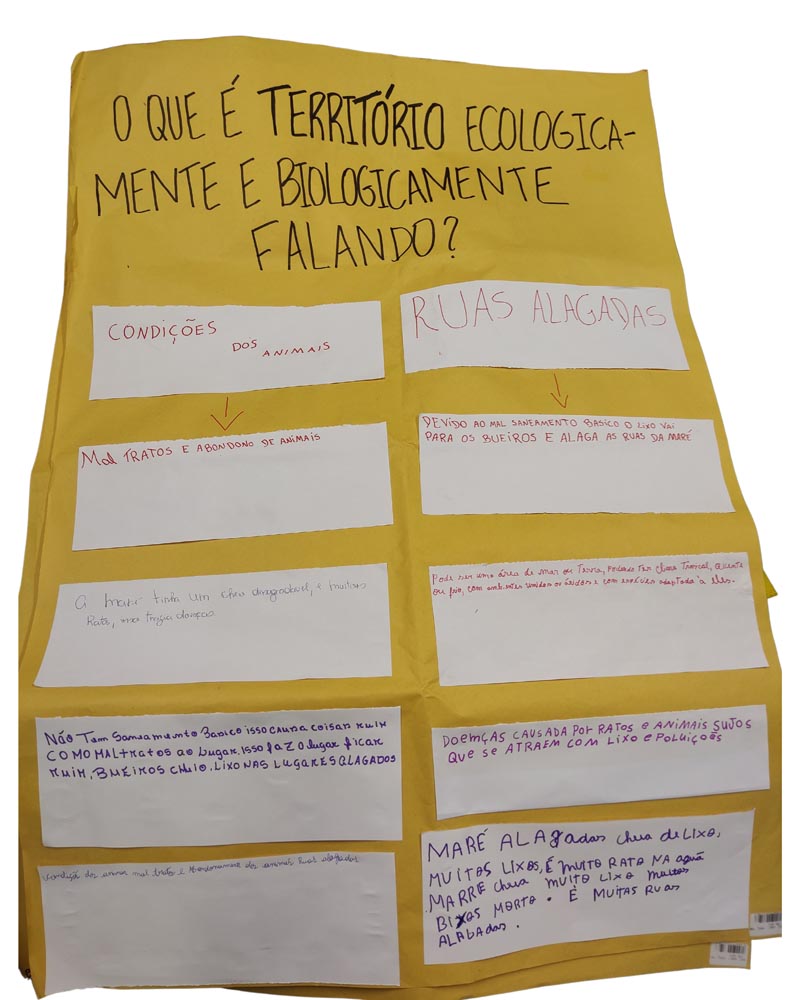 O QUE É TERRITÓRIO ECOLOGICA-
MENTE E BIOLOGICAMENTE
FALANDO?
CONDIÇÕES
DOS ANIMAIS
RUAS ALAGADAS
Mal TRATOS E ABONDONO DE ANIMAIS
DEVIDO AO MAL SANEAMENTO BASICO O LIXO VAI
PARA OS BUEIROS E ALAGA AS RUAS DA MARÉ
A maré tinha um chero desagradavel, e muitos
Rato, trazia doenças
Pode ser uma área de mar ou Terra, podendo Ter clima Tropical, quente
ou frio, com ambientes umidos ou áridos e com espécies adaptada à eles.
Não Tem Saneamento Basico isso causa coisas ruim
COMO MALTRATOS ao lugar, isso faz o lugar ficar
ruim, BUEIROS CHEIO, LIXO NAS LUGARES ALAGADOS
DOEMÇAS CAUSADA POR RATOS E ANIMAIS SUJOS
QUE SE ATRAEM COM LIXO E POLUIÇOẼS
Condição dos mal trato e dos animais Ruas alagadas
MARÉ ALAgadas cheia de LIXO,
MUITOS LIXOS, É MUITO RATO NA aguã
MARRE cheia MUITO LIXO Muitos
BIXOS MORTO. É MUITAS RUAS
ALAGADAS.